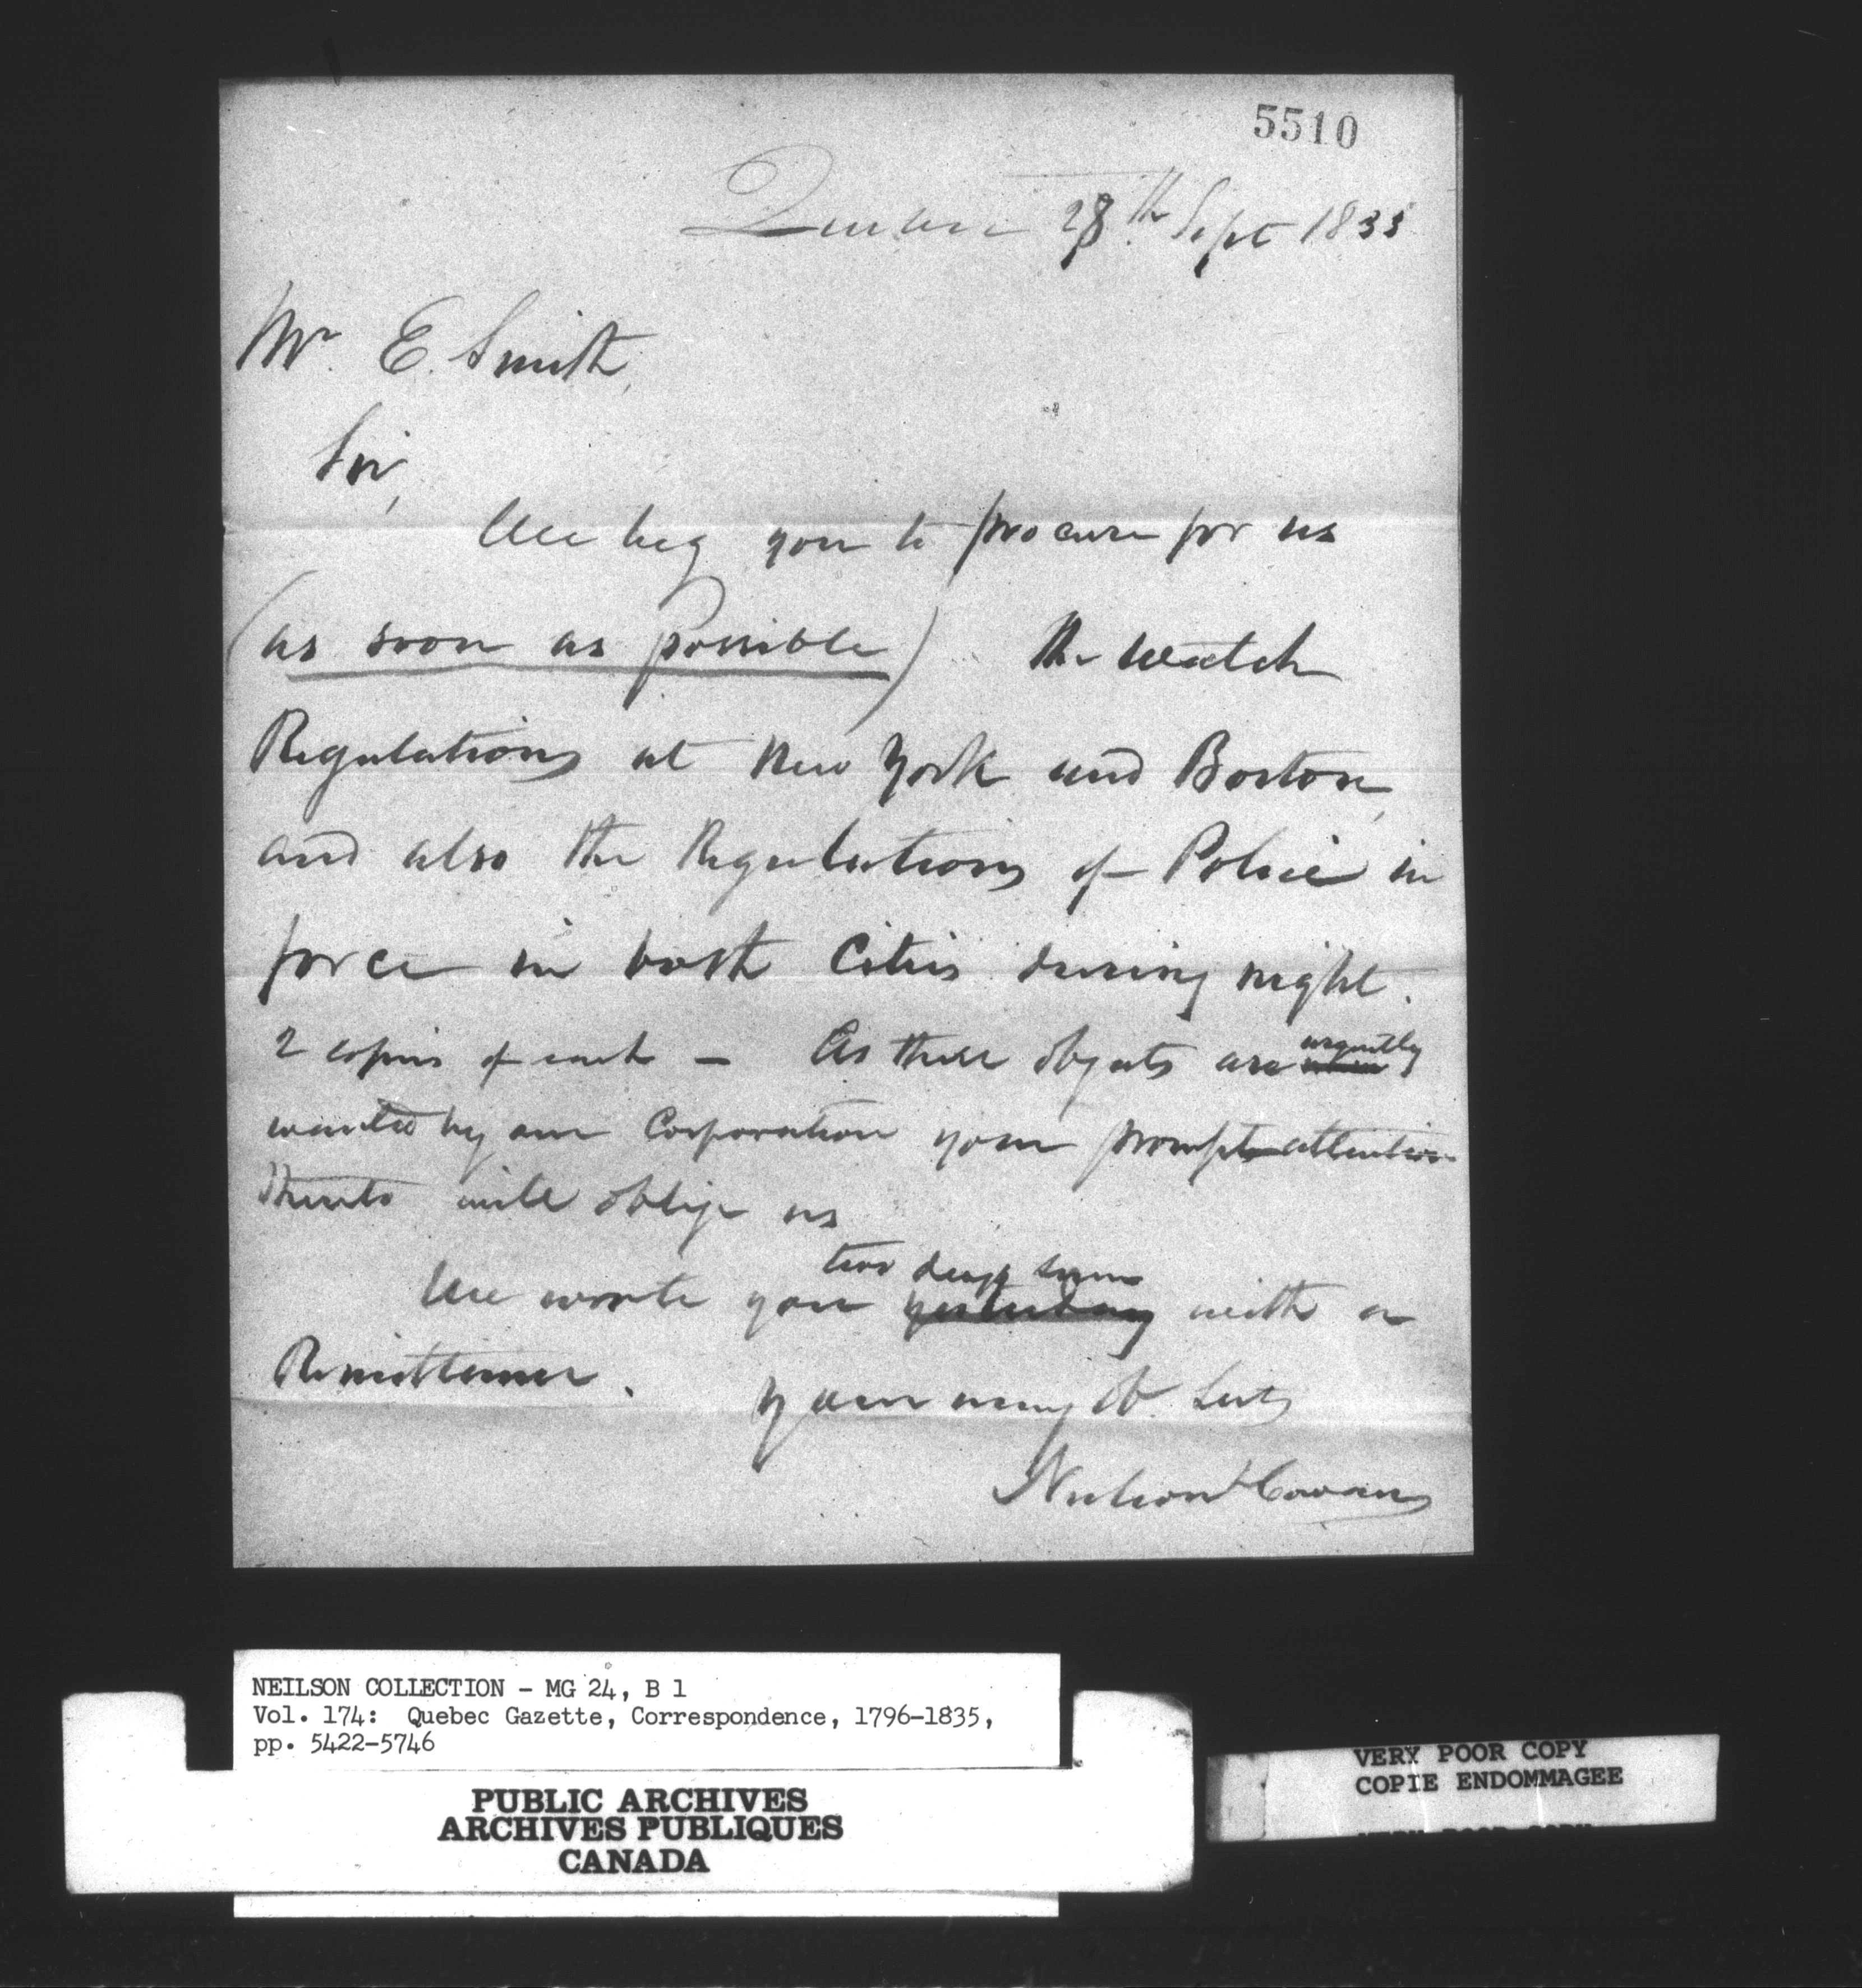 5510
Quebec 28th Sept 1833
Mr. E. Smith,
Sir,
We beg you to procure for us
(as soon as possible) the Watch
Regulations at New York and Boston,
and also the Regulations of Police in
force in both Cities during night.
2 copies of each – As these objects are urgently
wanted by our Corporation your prompt attention
thereto will oblige us
two days since
We wrote you yesterday with a
Remittance.
Your very ob. Svts
Neilson & Cowan
NEILSON COLLECTION - MG 24, B 1
Vol. 174: Quebec Gazette, Correspondence, 1796-1835,
pp. 5422-5746
PUBLIC ARCHIVES
ARCHIVES PUBLIQUES
CANADA
VERY POOR COPY
COPIE ENDOMMAGEE
VERY POOR COPY